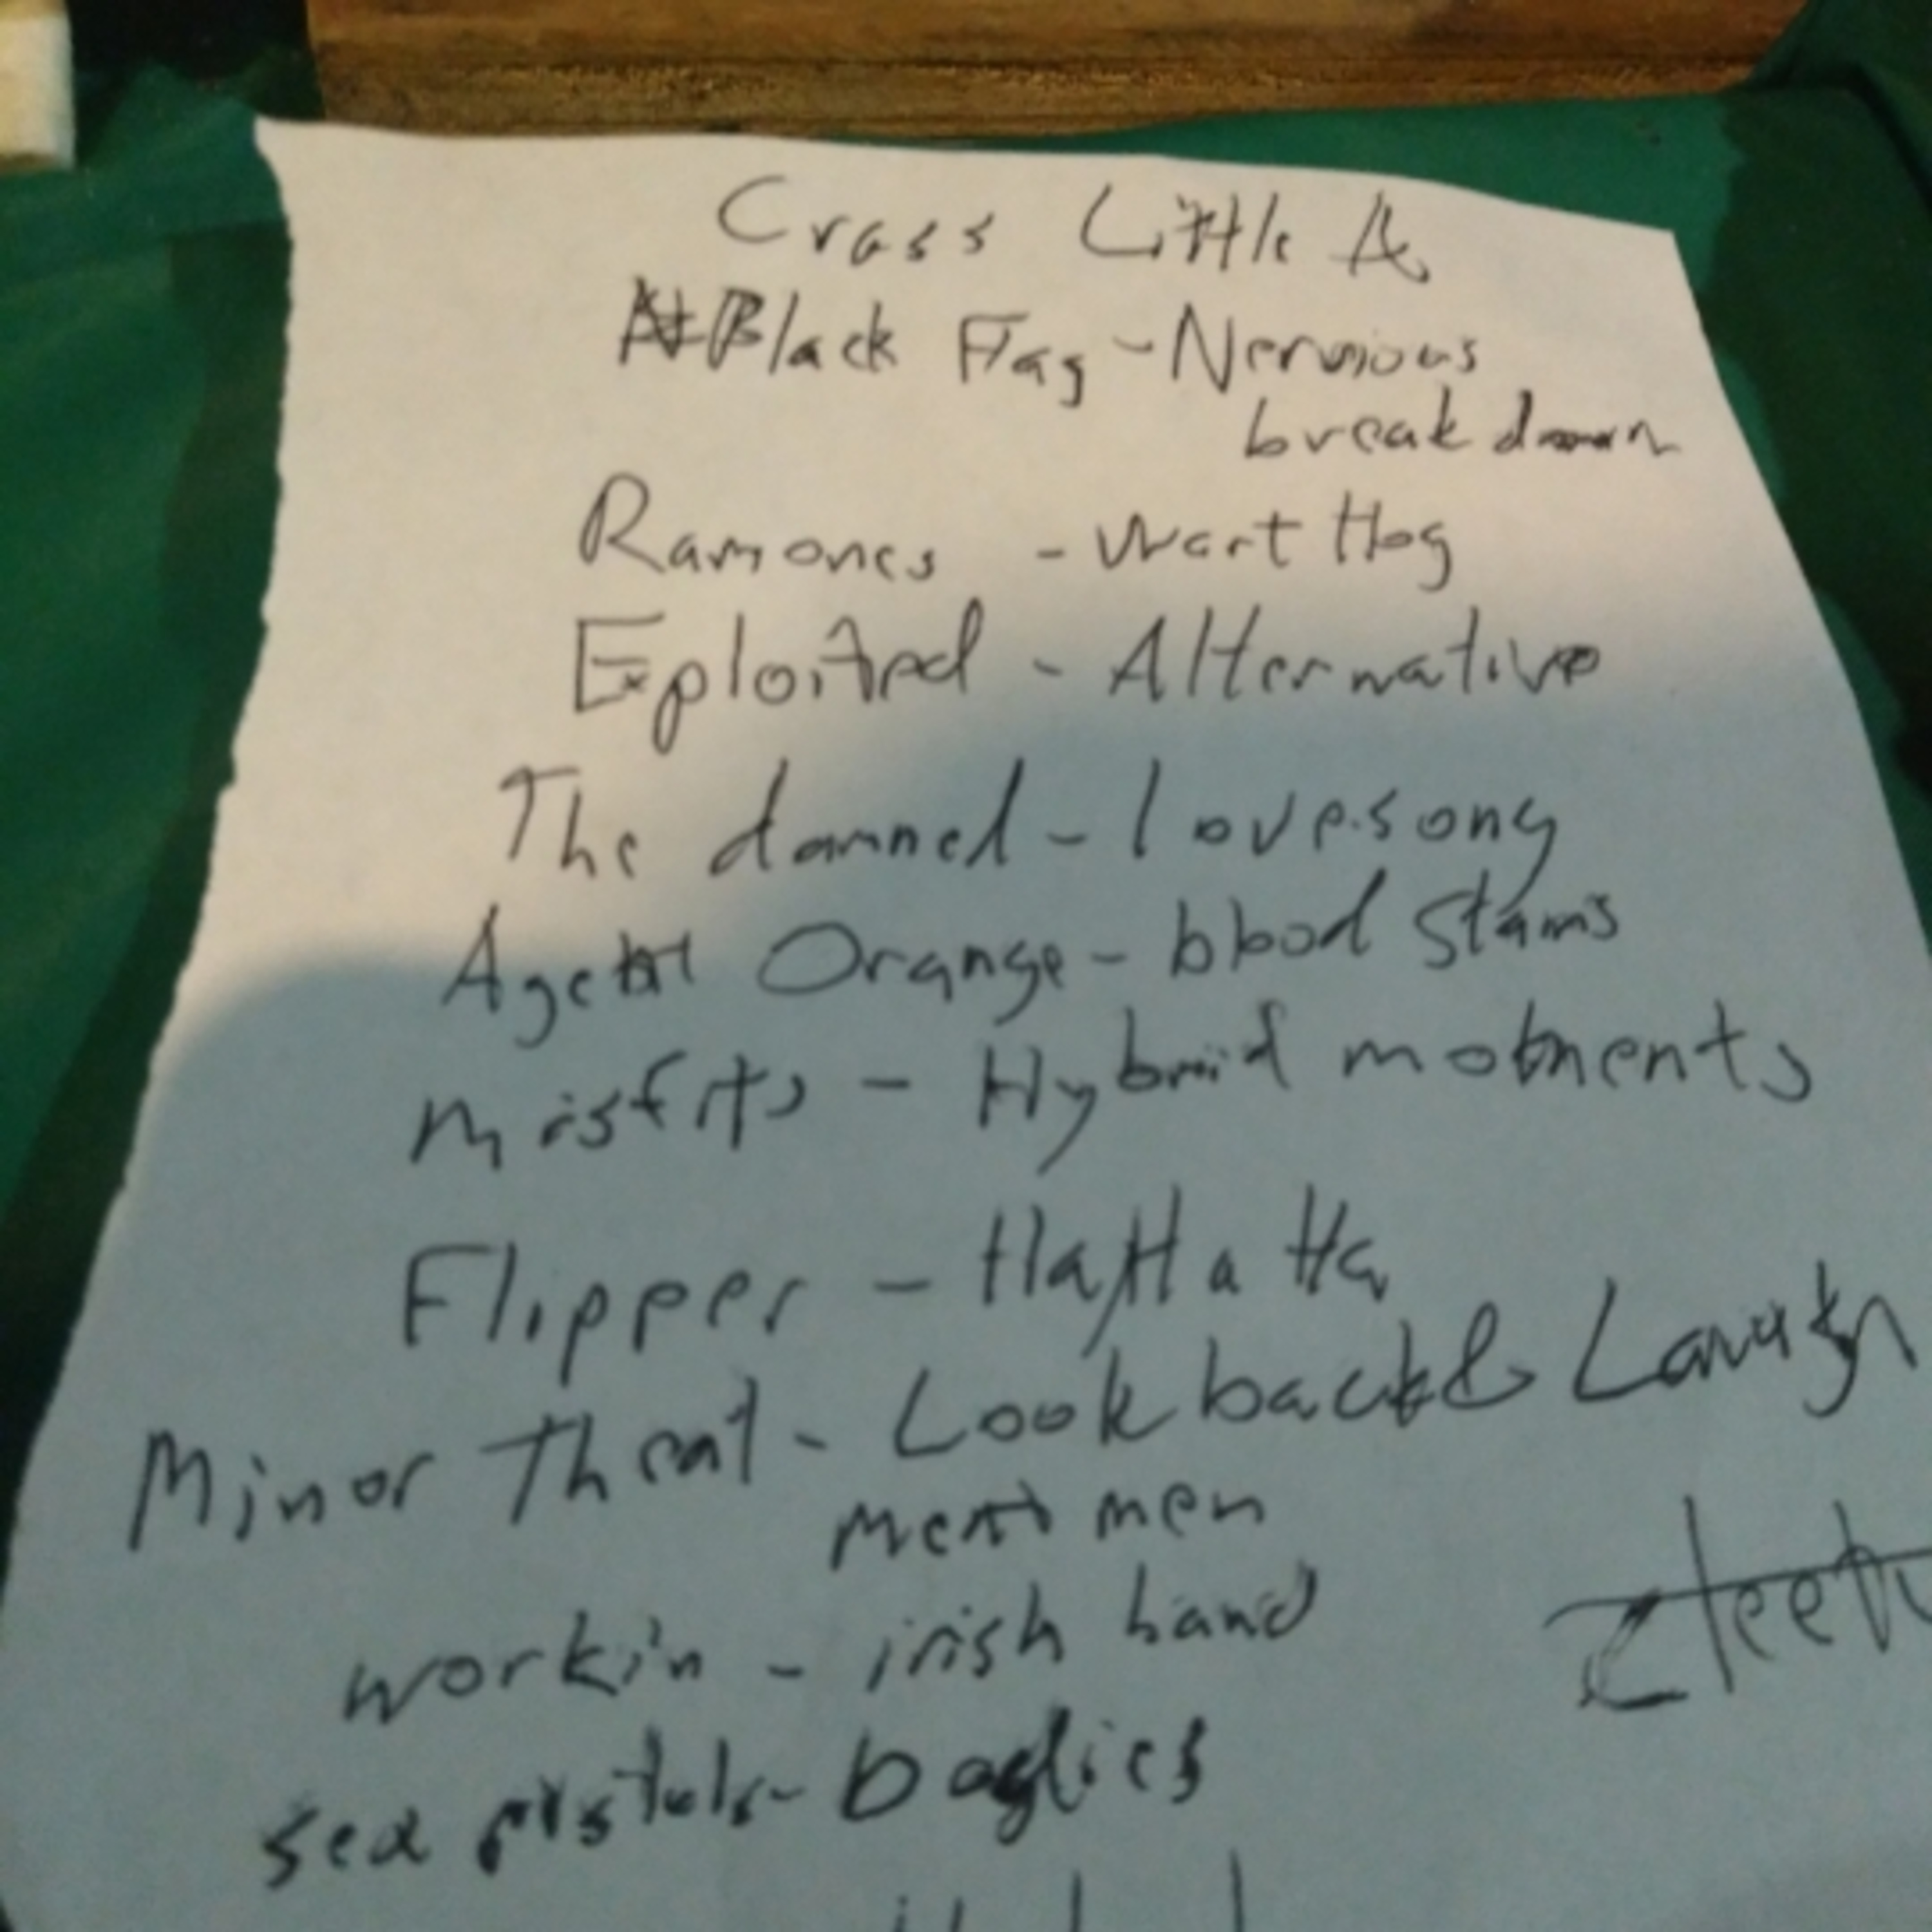 Crass Little A
Black Flag - Nervious
break down
Ramones - Wart Hog
Exploited - Alternative
The damned - lovesong
Agent Orange - blood stams
misfits - Hybrid moments
Flipper - Ha Ha Ha
Minor Threat - Look back & Laugh
men
workin - irish band
sex pistols - bodies